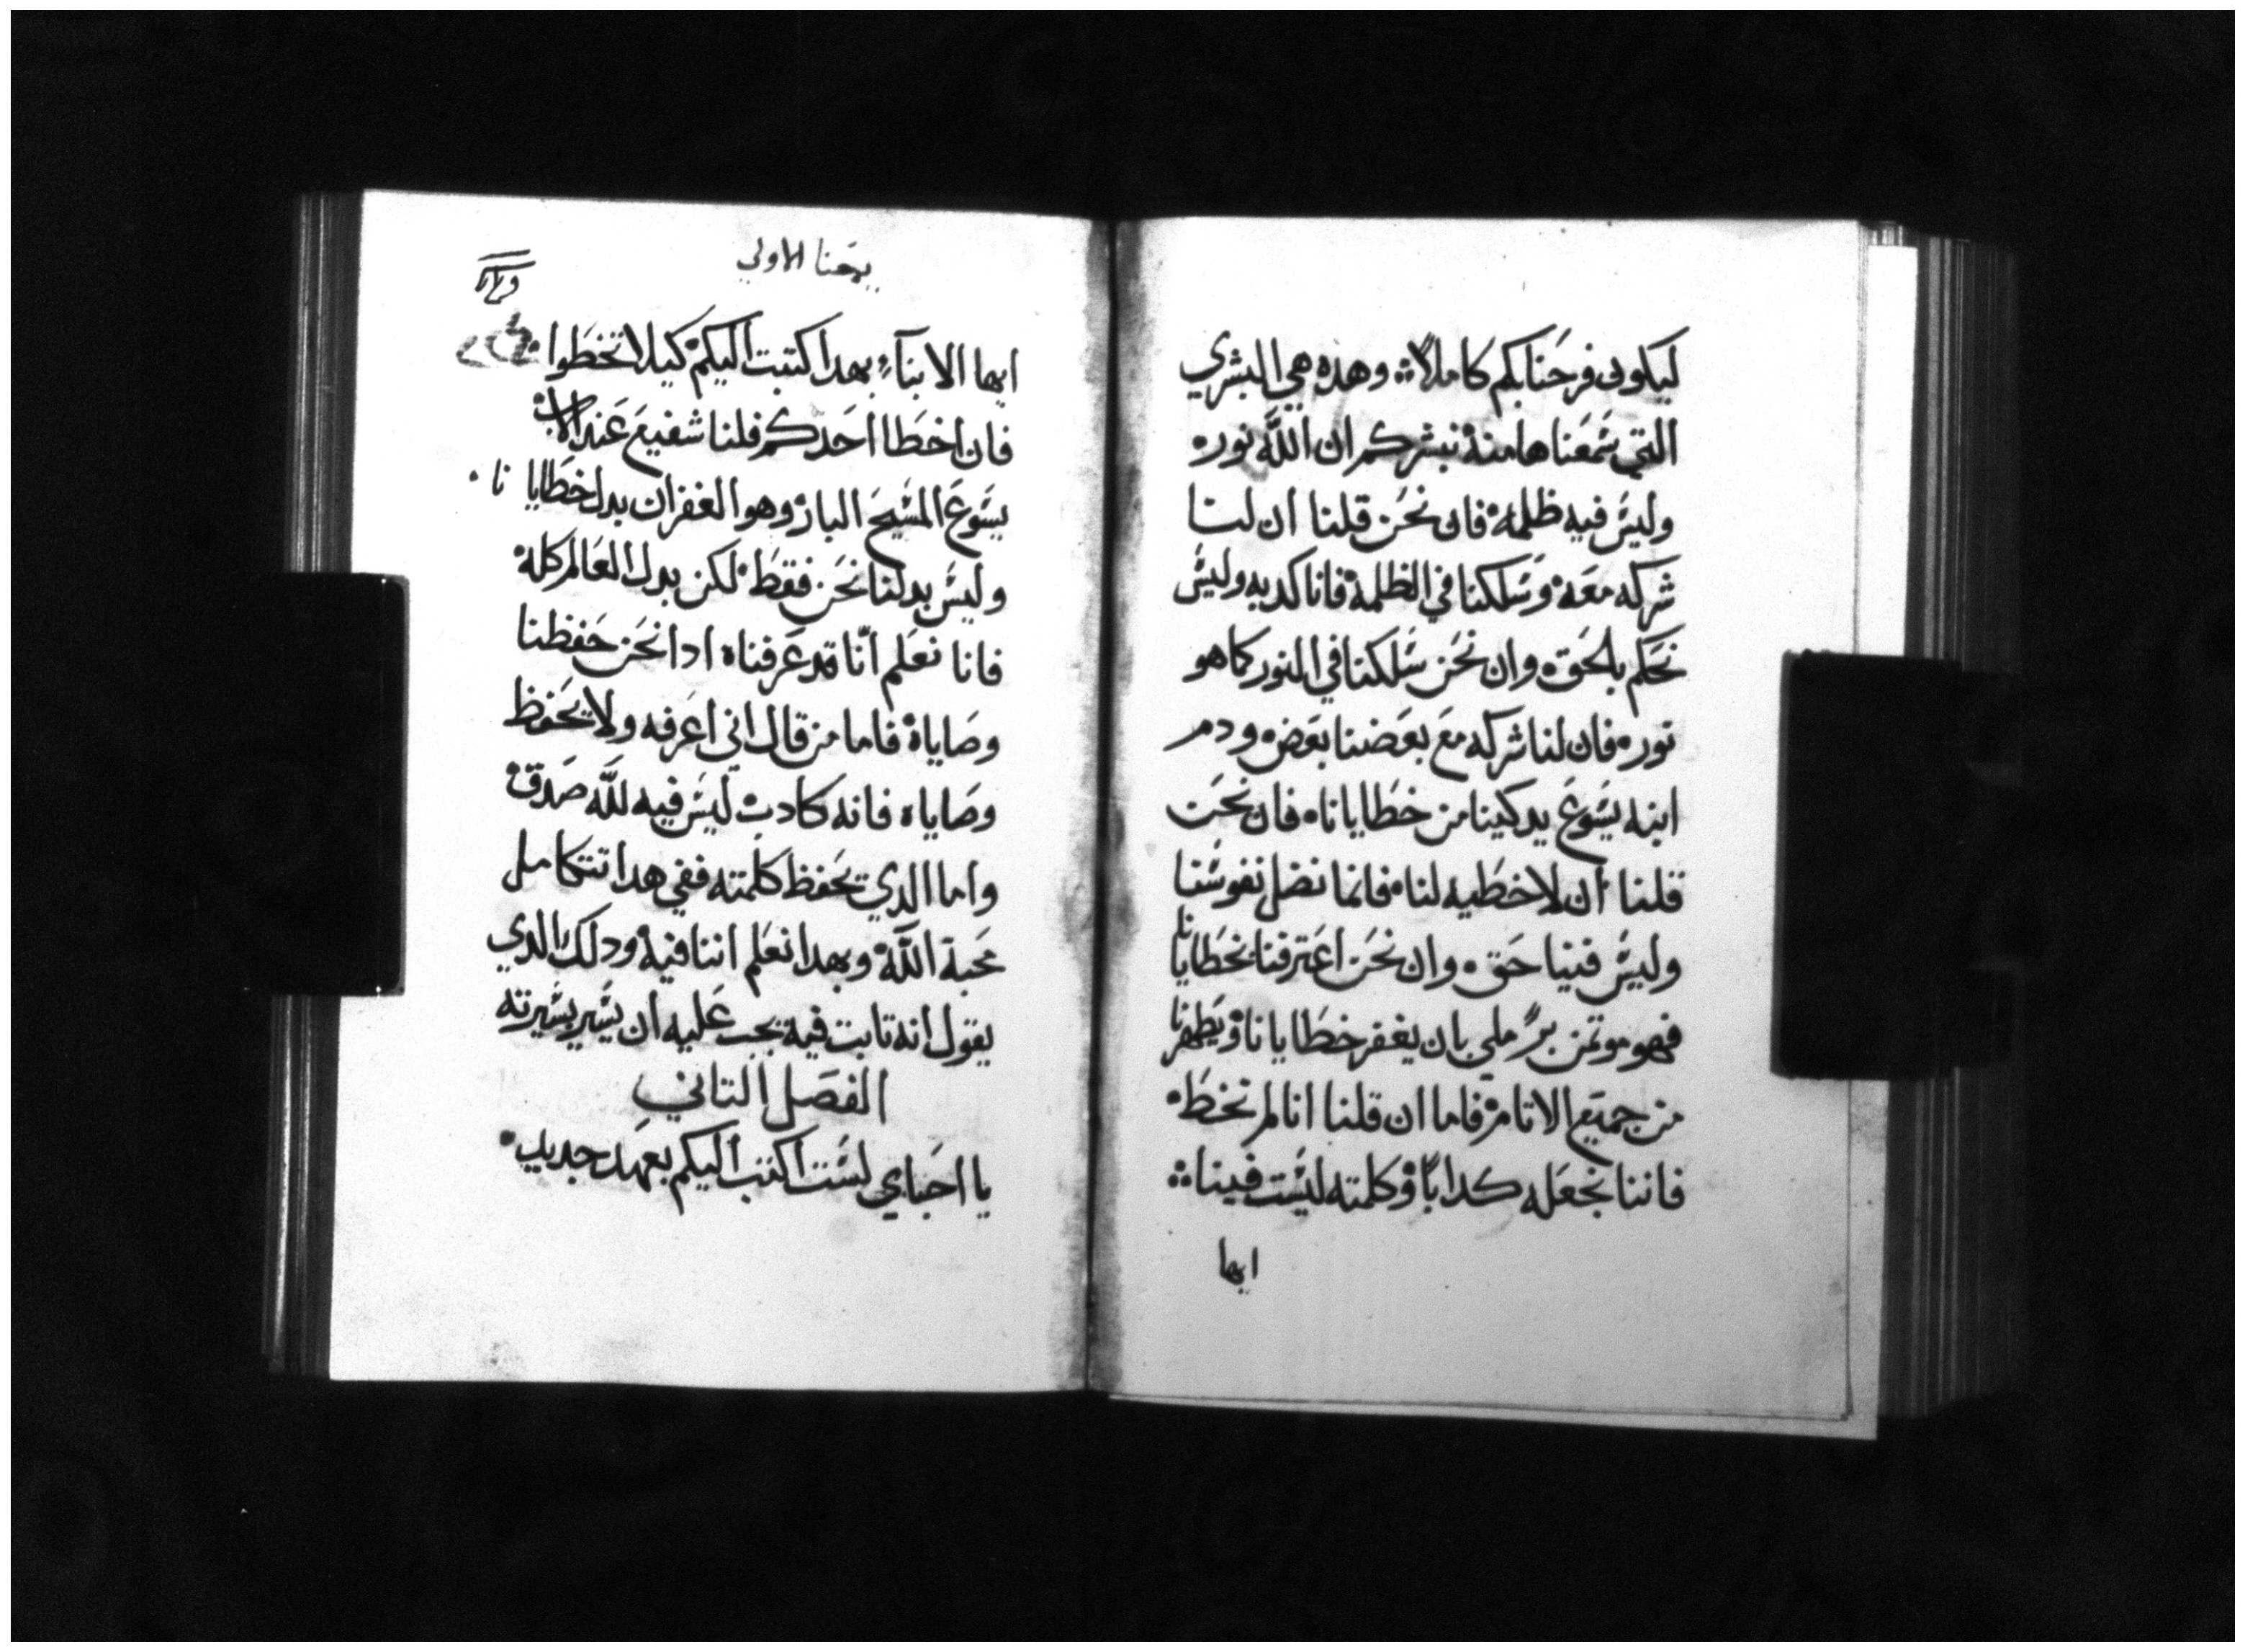 ليكون فرحنا بكم كاملاً وهده هي البشري
التي سمعناها منه نبشركم ان اللّه نور
وليس فيه ظلمة فان نحن قلنا ان لنا
شركه معه وسلكنا في الظلمة فانا كدبه وليس
نحكم بالحق وان نحن سلكنا في النور كما هو
نور فان لنا شركه مع بعضنا بعض ودم
ابنه يسوع يدكينا من خطايانا فان نحن
قلنا ان لا خطيه لنا فانما نضل نفوسنا
وليس فينا حق وان نحن اعترفنا بخطايانا
فهو موتمن برً ملي بان يغفر خطايانا ويطهرنا
من جميع الاتام فاما ان قلنا انا لم نخط
فاننا نجعله كداباً وكلمته ليست فينا
ايها
يوحنا الاولي
ايها الابنآء بهدا كتبت اليكم كيلا تخطوا
فان اخطا احدكم فلنا شفيع عند الاب
يسوع المسيح البار وهو الغفران بدل خطايانا
وليس بدلنا نحن فقط لكن بدل العالم كله
فانا نعلم انّا قد عرفناه ادا نحن حفظنا
وصاياه فاما من قال اني اعرفه ولا يحفظ
وصاياه فانه كادب ليس فيه للّه صدق
واما الدي يحفظ كلمته ففي هدا تتكامل
محبة اللّه وبهدا نعلم اننا فيه ودلك الدي
يقول انه تابت فيه يجب عليه ان يسير بسيرته
الفصل التاني
يا احباي لست اكتب اليكم بعهد جديد